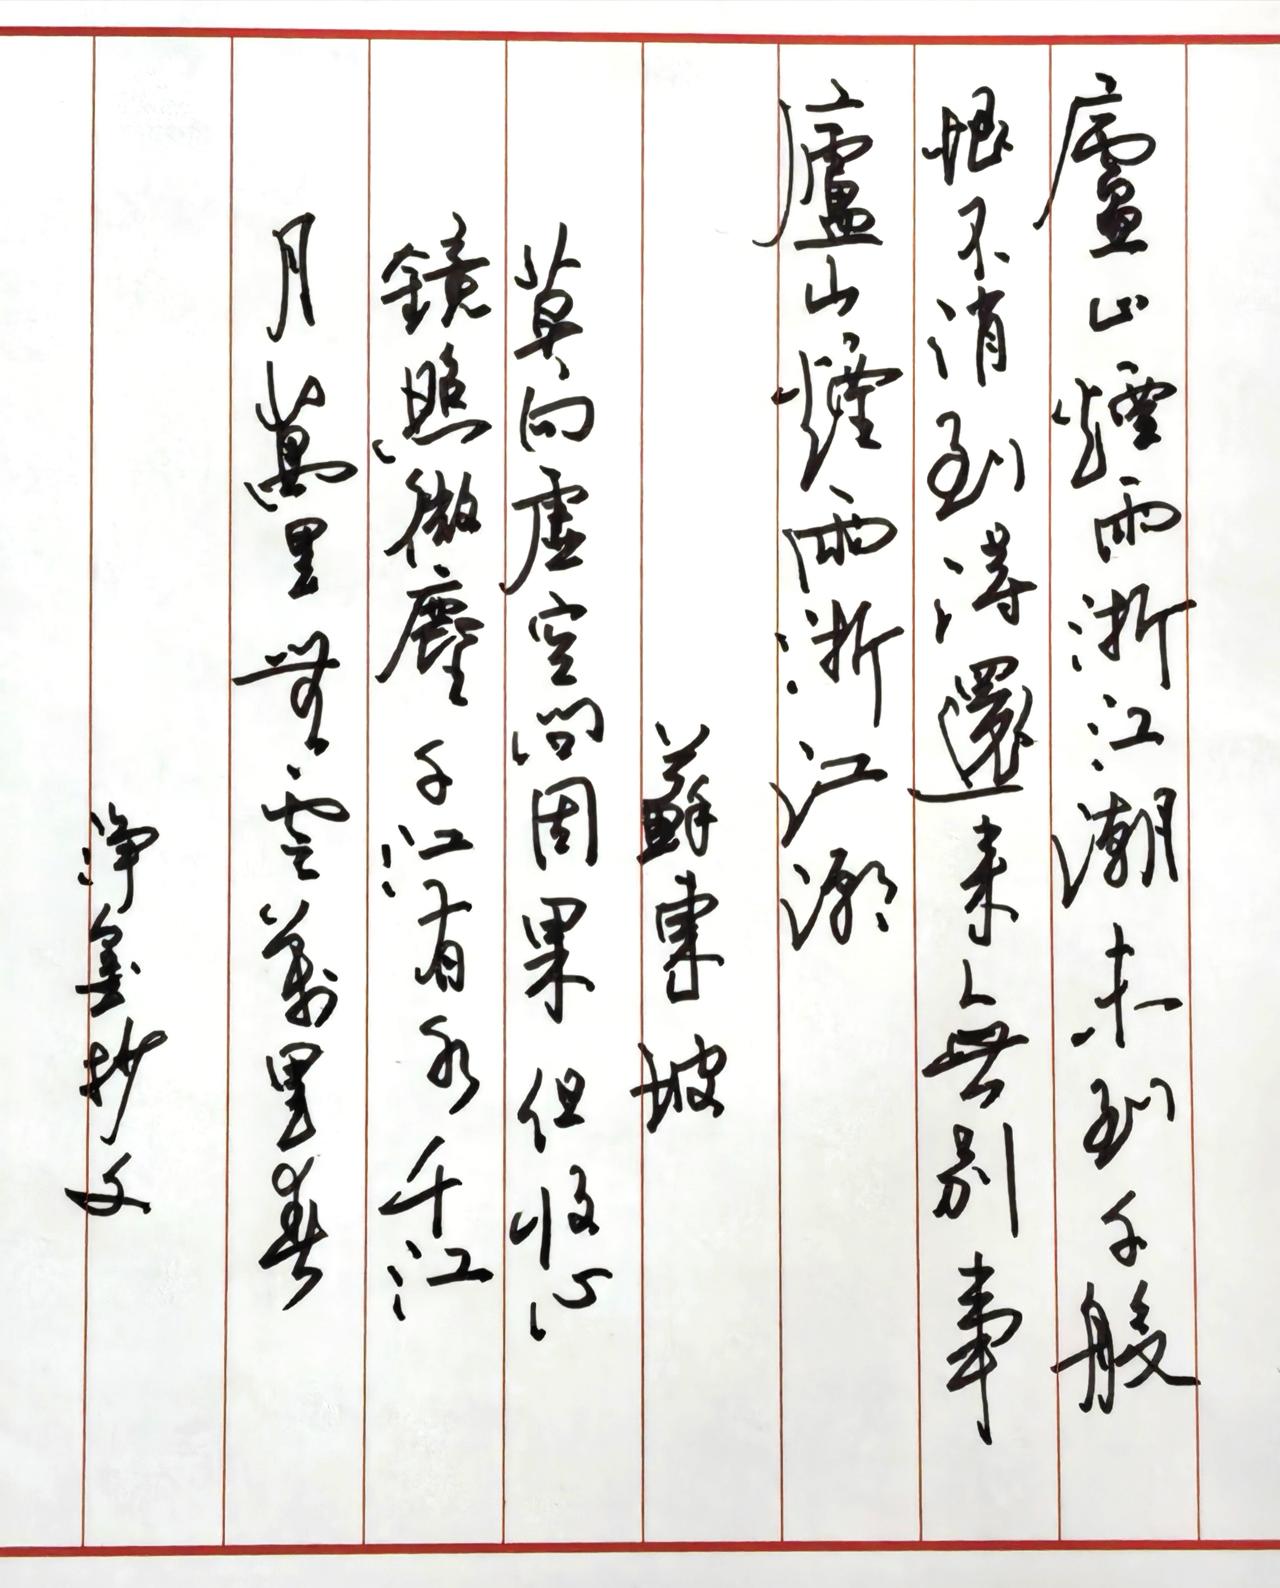 廬山煙雨浙江潮未到千般
恨不消到得還來無別事
廬山煙雨浙江潮
蘇東坡
莫向虛空問因果但收心
鏡照微塵千江有水千江
月萬里無雲萬里春
淨墨抄文